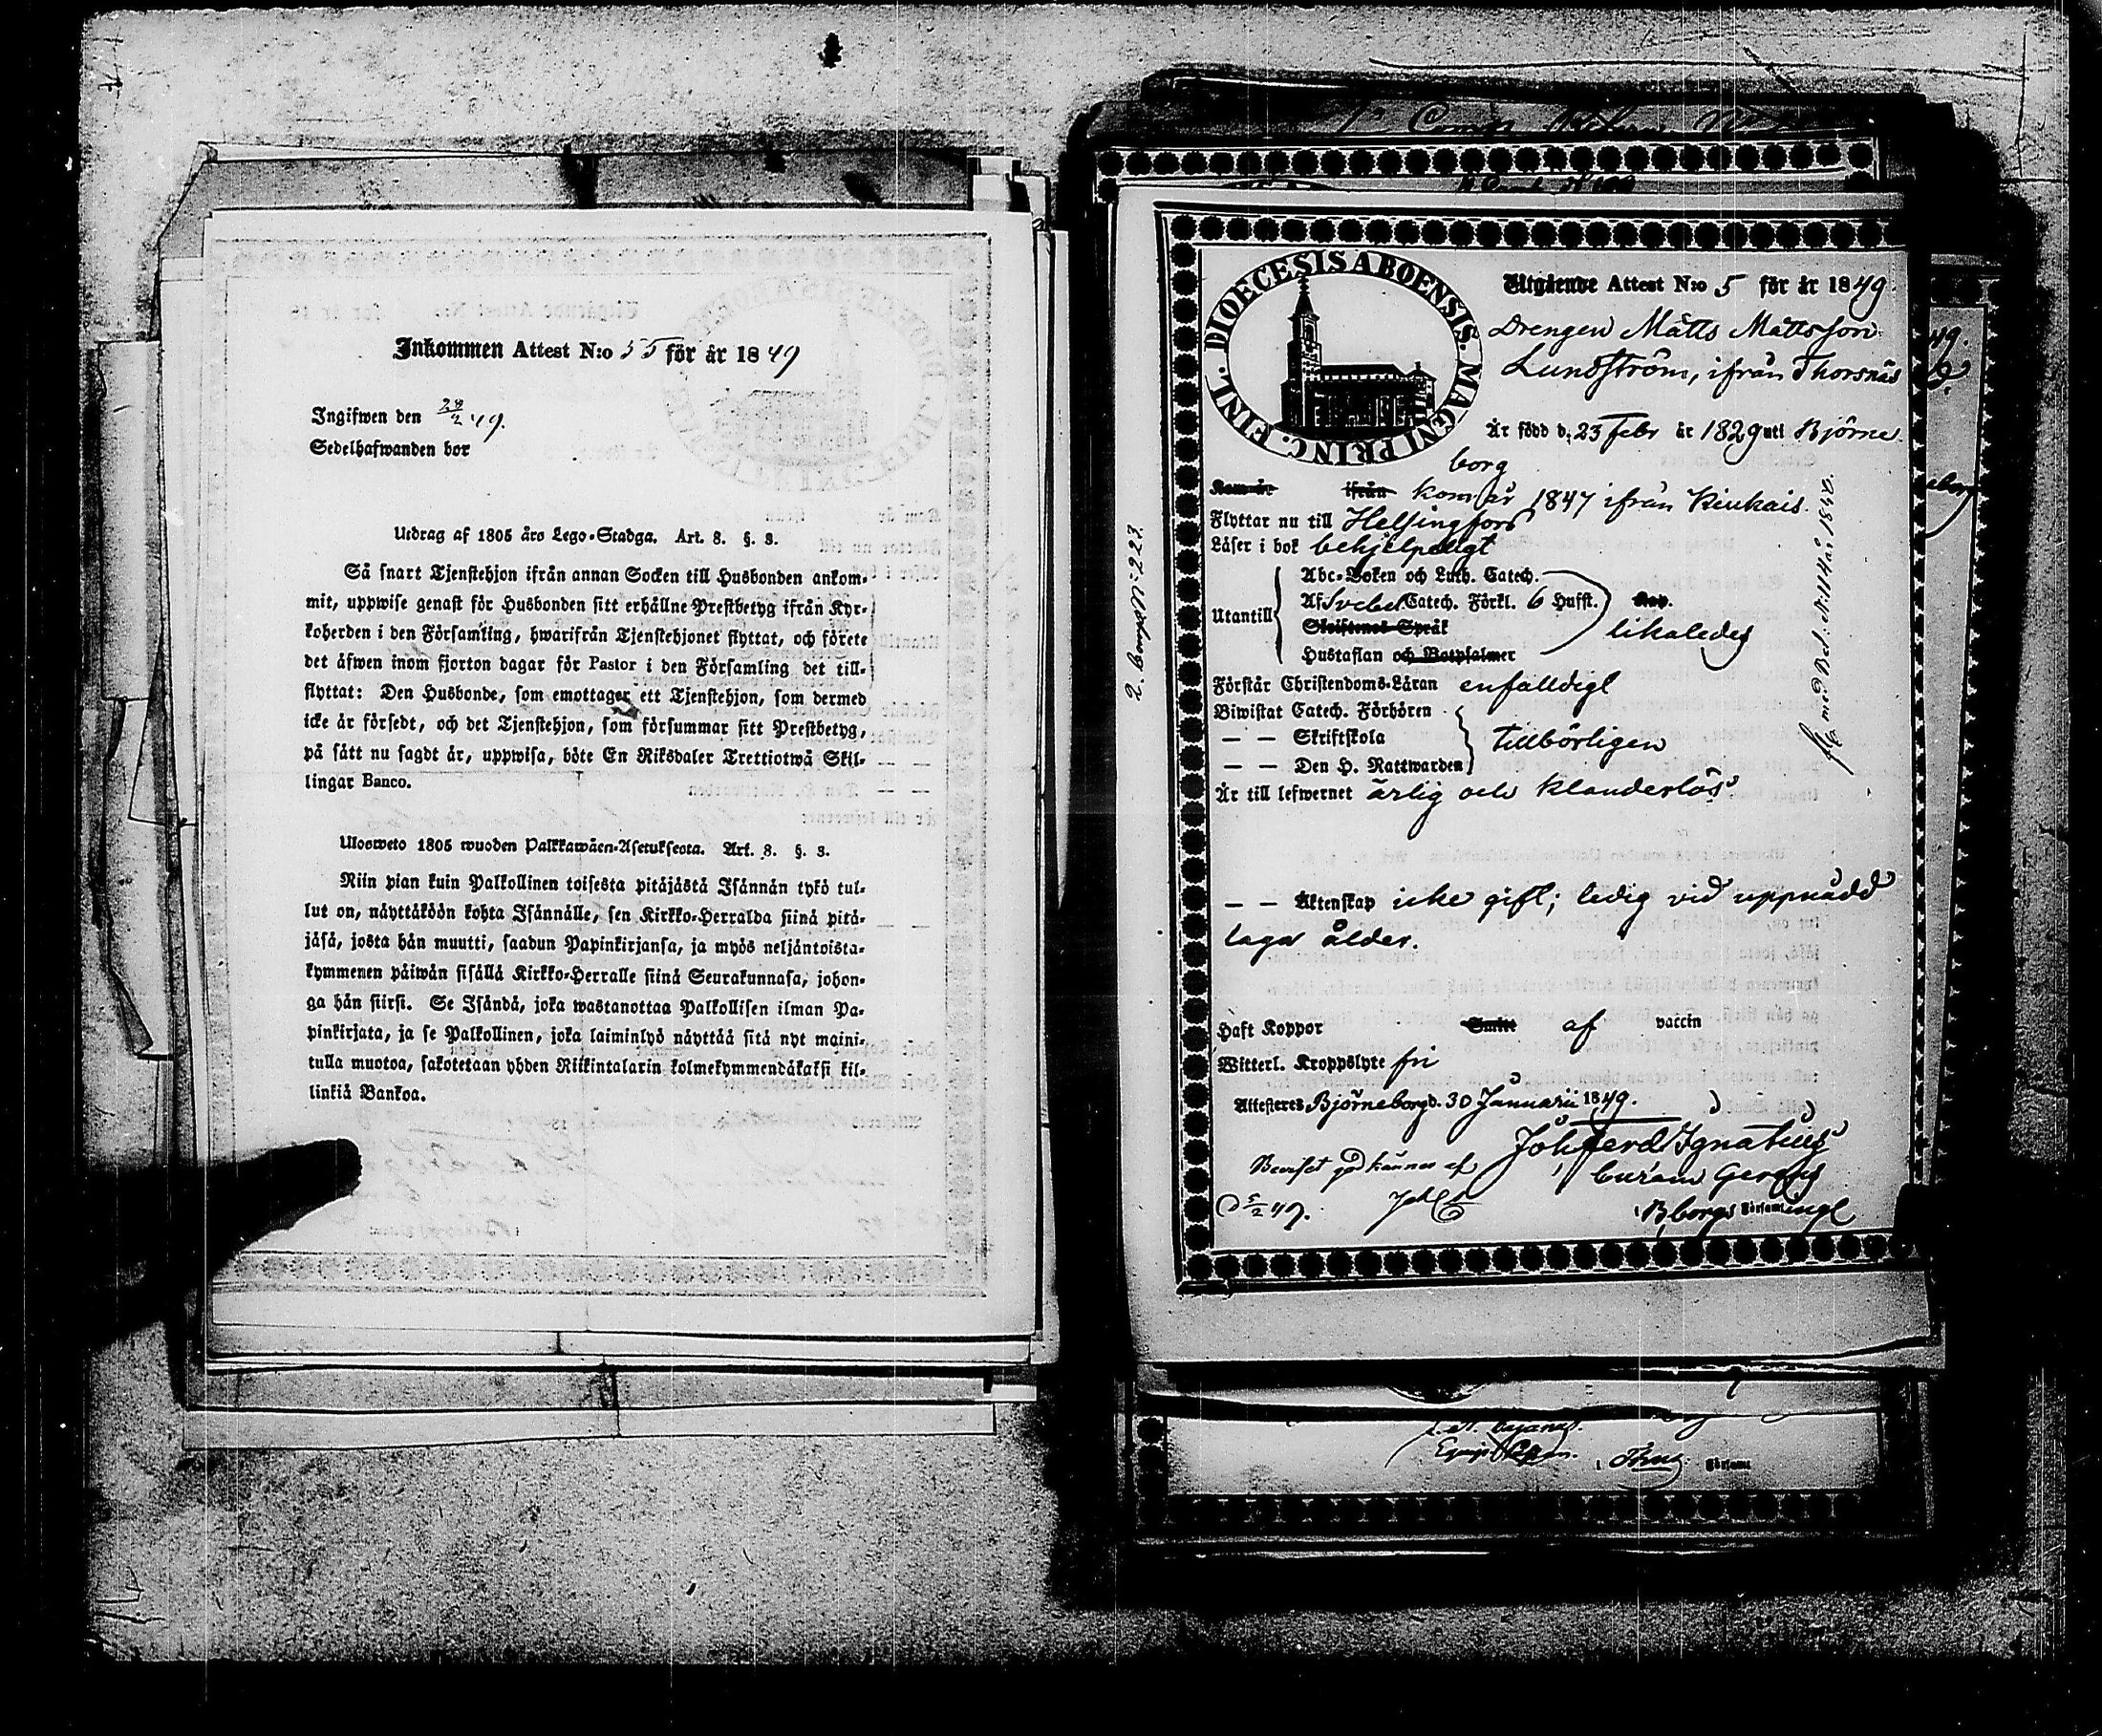 Inkommen Attest N:o 55 för år 1849
Ingifwen den 28/2 49.
Sedelhafwanden bor
Utdrag af 1805 års Lego-Stadga. Art. 8. §. 8.
Så snart Tjenstehjon ifrån annan Socken till Husbonden ankom-
mit, uppwise genast för Husbonden sitt erhållne Prestbetyg ifrån Kyr-
koherden i den Församling, hwarifrån Tjenstehjonet flyttat, och förete
det äfwen inom fjorton dagar för Pastor i den Församling det till-
flyttat: Den Husbonde, som emottager ett Tjenstehjon, som dermed
icke är försedt, och det Tjenstehjon, som försummar sitt Prestbetyg,
på sätt nu sagdt är, uppwisa, böte En Riksdaler Trettiotwå Skil-
lingar Banco.
Ulosweto 1805 wuoden Palkkawäen-Asetuksesta. Art. 8. §. 8.
Niin pian kuin Palkollinen toisesta pitäjästä Isännän tykö tul-
lut on, näyttäköön kohta Isännälle, sen Kirkko-Herralda siinä pitä-
jäsä, josta hän muutti, saadun Papinkirjansa, ja myös neljäntoista-
kymmenen päiwän sisällä Kirkko-Herralle siinä Seurakunnasa, johon-
ga hän siirsi. Se Isändä, joka wastanottaa Palkollisen ilman Pa-
pinkirjata, ja se Palkollinen, joka laiminlyö näyttää sitä nyt maini-
tulla muotoa, sakotetaan yhden Riikintalarin kolmekymmendäkaksi kil-
linkiä Bankoa.
DIOECESIS ABOENSIS. MAGNI PRINC. FINL.
Utgående Attest N:o 5 för år 1849.
Drengen Matts Mattsson
Lundström, ifrån Thorsnäs
Är född d. 23 Febr år 1829 uti Björne
borg
Kom år ifrån kom år 1847 ifrån Kiukais.
Flyttar nu till Helsingfors
Läser i bok behjelpeligt
Abc-Boken och Luth. Catech.
Utantill Af Svebel Catech. Förkl. 6 Hufst.
Skriftenes Språk likaledes
Hustaflan och Botpsalmer
Förstår Christendoms-Läran enfalldigt
Biwistat Catech. Förhören
— — Skriftskola tillbörligen
— — Den H. Nattwarden
Är till lefwernet ärlig och klanderlös
— — Äktenskap icke gift; ledig vid uppnådd
laga ålder.
Haft Koppor Smitt af vaccin
Witterl. Kroppslyte fri
Attesteres Björneborg d. 30 Januarii 1849.
Joh. Ferd. Ignatius
Beviset godkännes af
curam gerens
d 5/2 49.
i Bborgs Församlingl
2. Comp. N: 223.